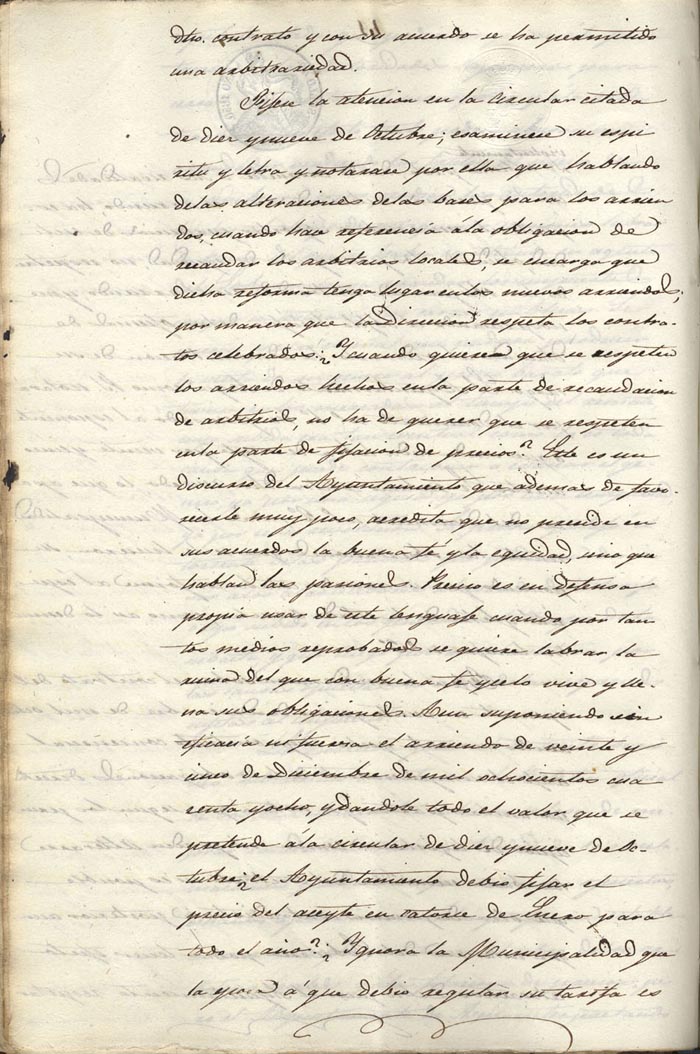 dho. contrato y con su acuerdo se ha permitido
una arbitrariedad.
Fijese la atencion en la circular citada
de diez y nueve de Octubre; esaminese su espi
ritu y letra y notarase por ella que hablando
delas alteraciones delas bases para los arrien
dos, cuando hace referencia ála obligacion de
recaudar los arbitrios locales, se encarga que
dicha reforma tenga lugar enlos nuevos arriendos;
por manera que la Direccion respeta los contra
tos celebrados: ¿Y cuando quieren que se respeten
los arriendos hechos enla parte de recaudacion
de arbitrios, no ha de querer que se respeten
enla parte de fijacion de precios? Este es un
discurso del Ayuntamiento que ademas de favo
recerle muy poco, acredita que no preside en
sus acuerdos la buena fé y la equidad, sino que
hablan las pasiones. Preciso es en defensa
propia usar de este lenguaje cuando por tan
tos medios reprobados se quiere labrar la
ruina del que con buena fe y celo vive y lle-
na sus obligaciones. Aun suponiendo sin
eficacia ni fuerza el arriendo de veinte y
cinco de Diciembre de mil ochocientos cua
renta y ocho, y dandole todo el valor que se
pretende ála circular de diez y nueve de Oc-
tubre; ¿el Ayuntamiento debio fijar el
precio del aceyte en catorce de Enero para
todo el año? ¿Ygnora la Municipalidad que
la epoca á que debio regular su tarifa es